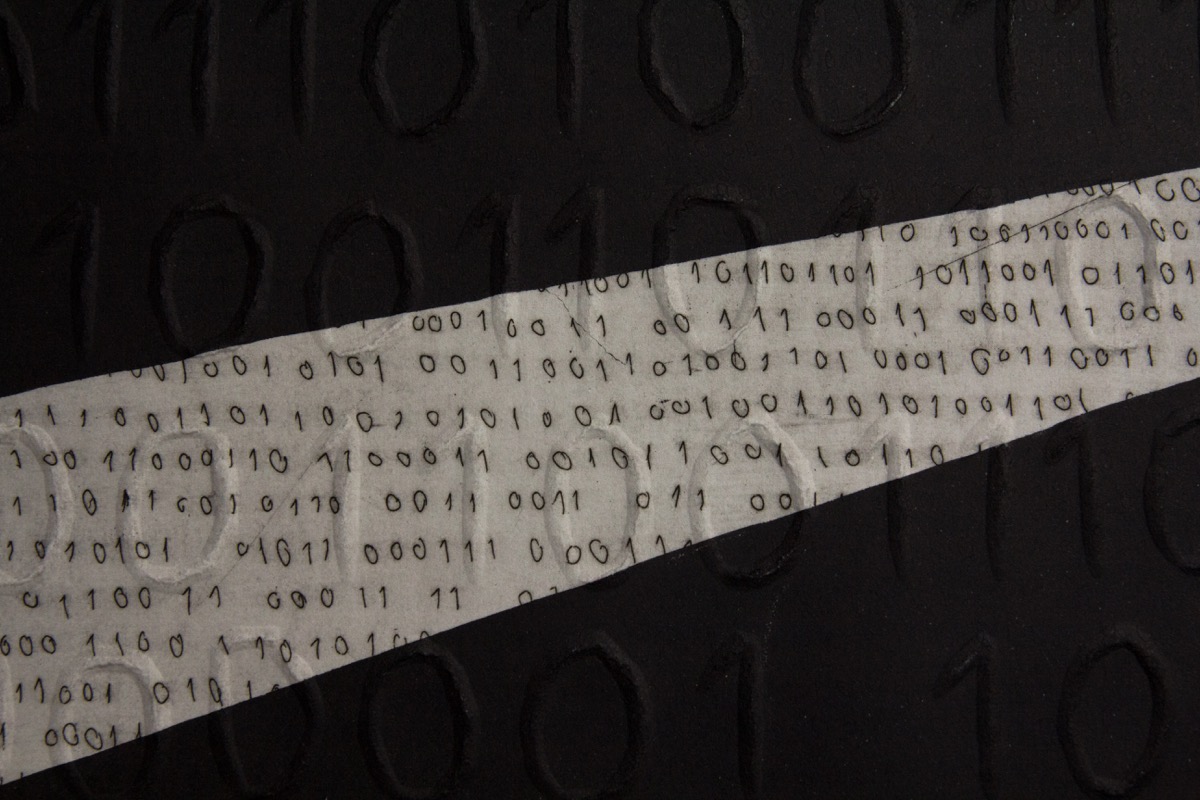 0111010011
100110110
0001 00
110 100110001 001
11001 101101101 1011001 01101
0001 0011 00 111 00011 0001 11 000
001001 0101 00 110011 010001 101 0001 00110011 0
111 001101 10 0101010 001 001001101010011101
0011001110
100 11000110 11000011 00101110001 10110
11011 001 0110 0011 0011 011 001
1010101 01011 000111 0 00111
01100 11 000 11 11 0
000 1100 110101
0000110
11001 0101
00011